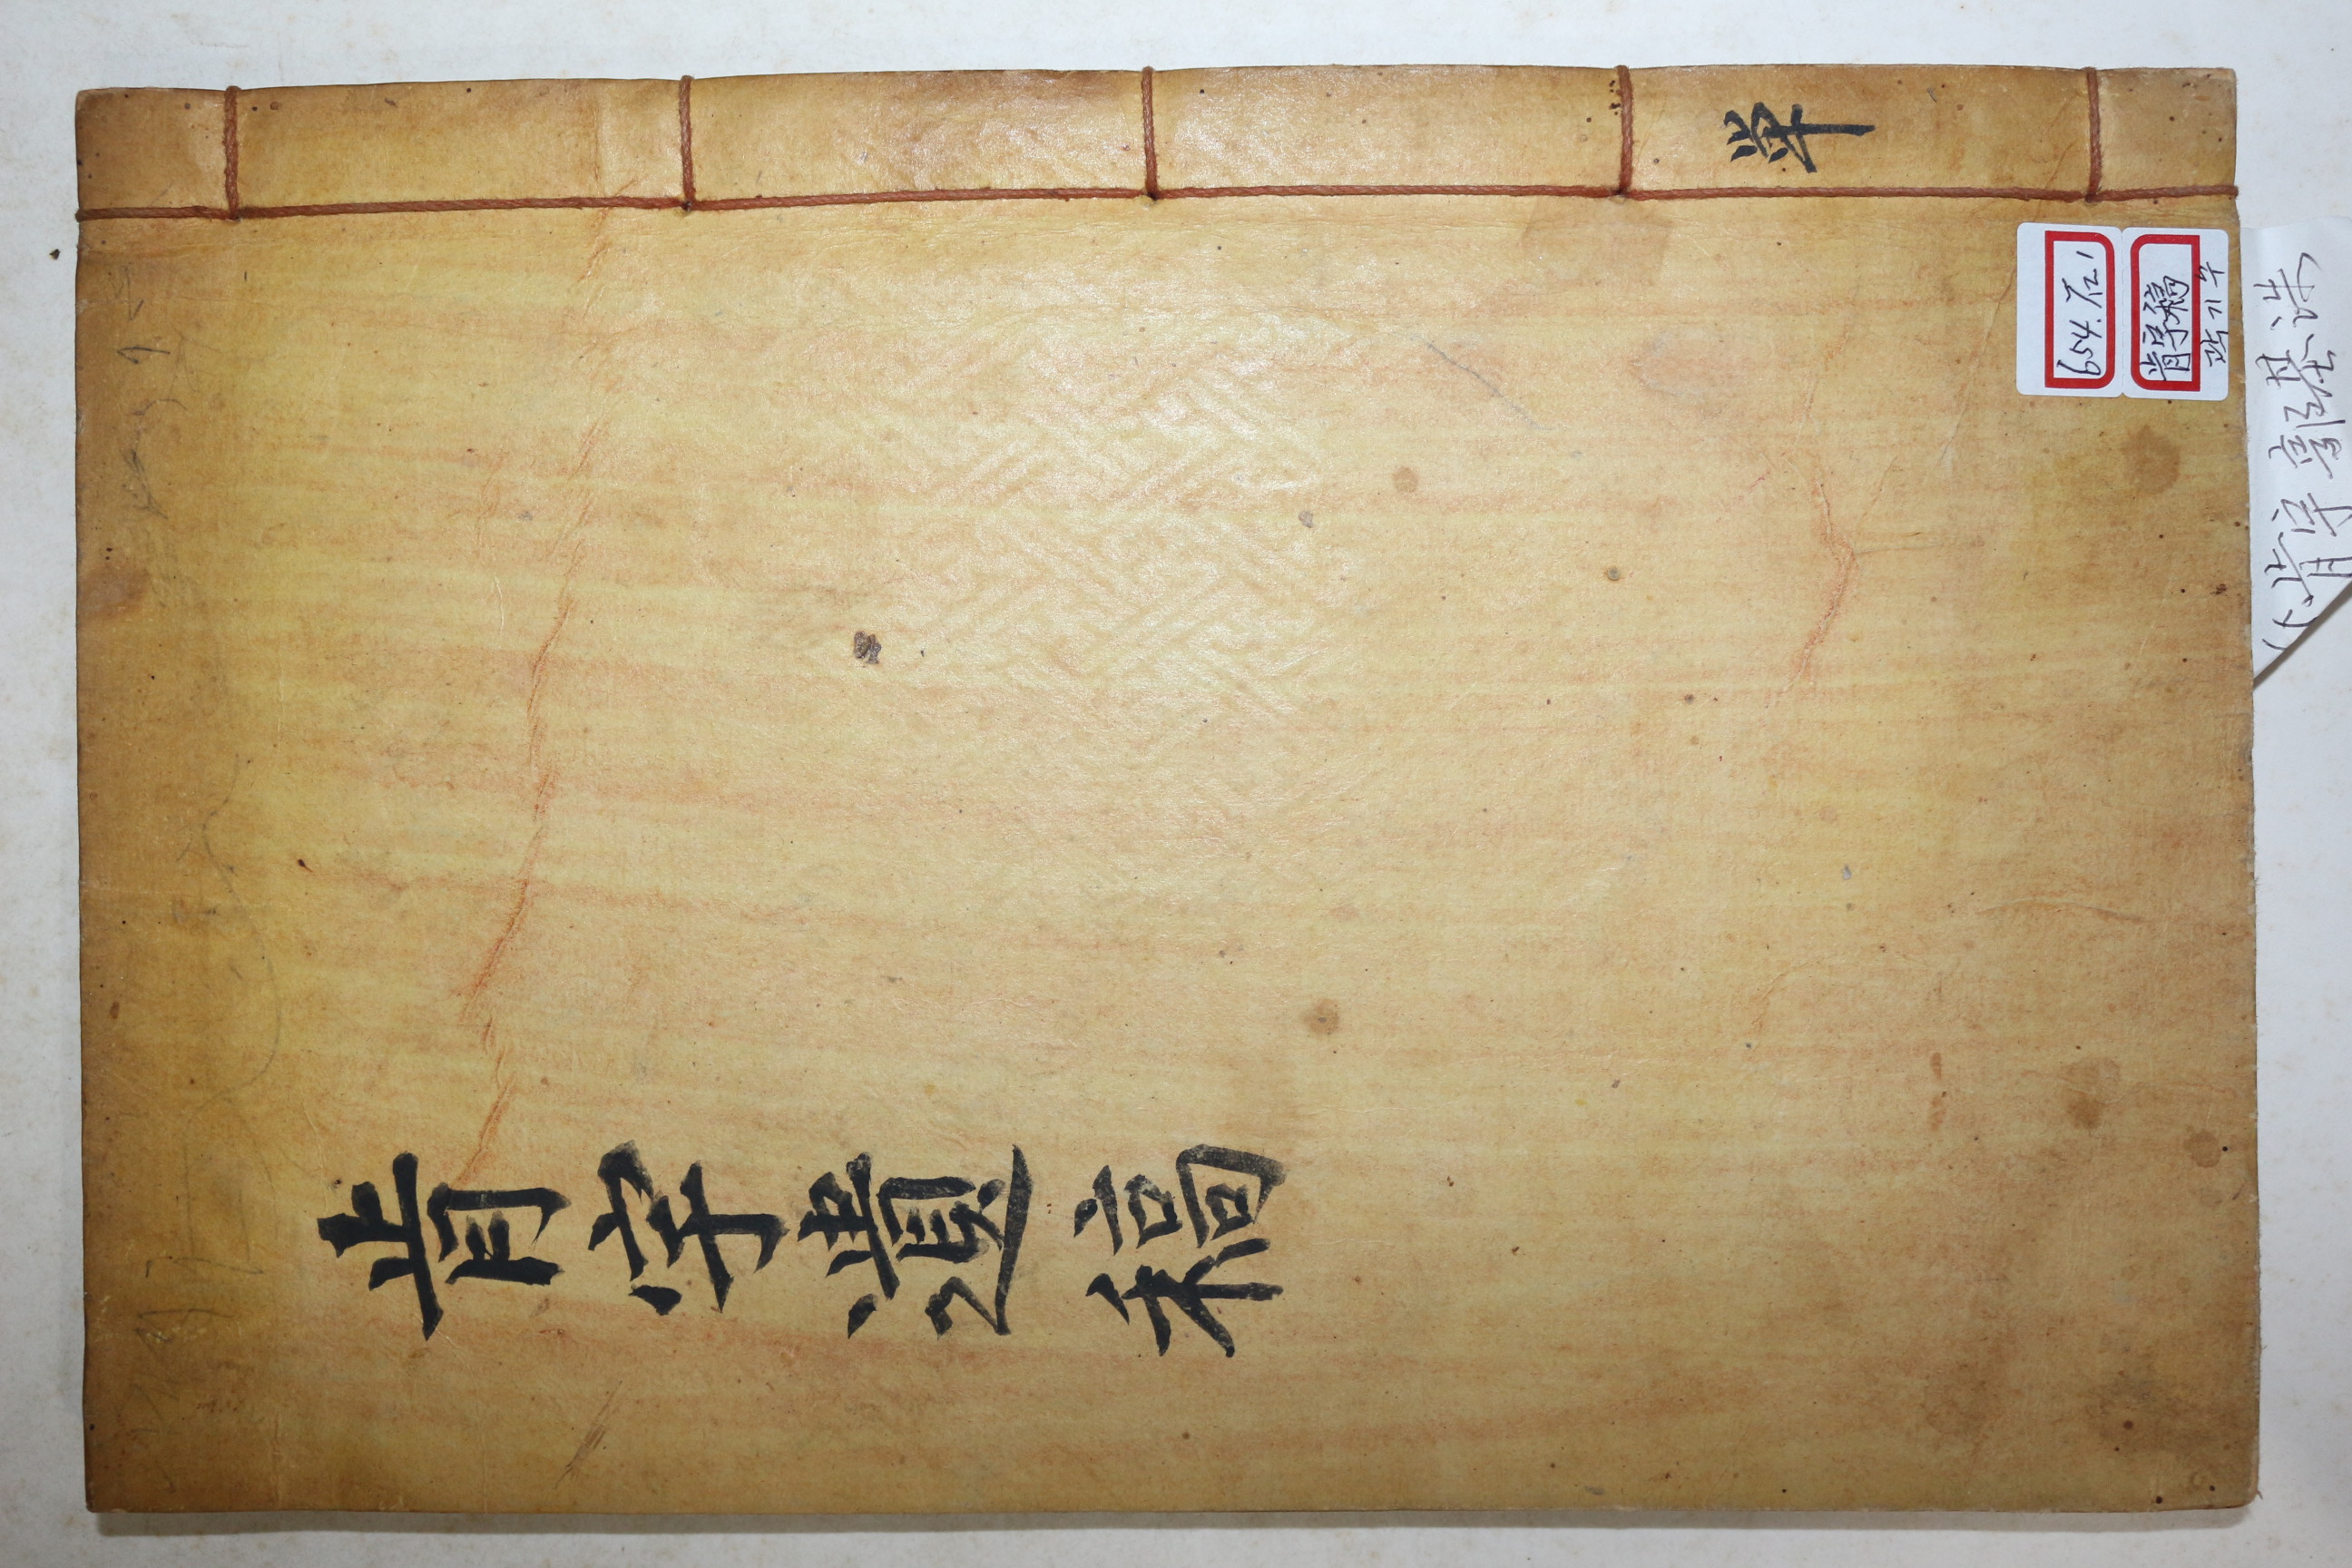 肯宇遺稿
単
654. 石1
肯宇稿
곽기수
肯宇 郭基洙